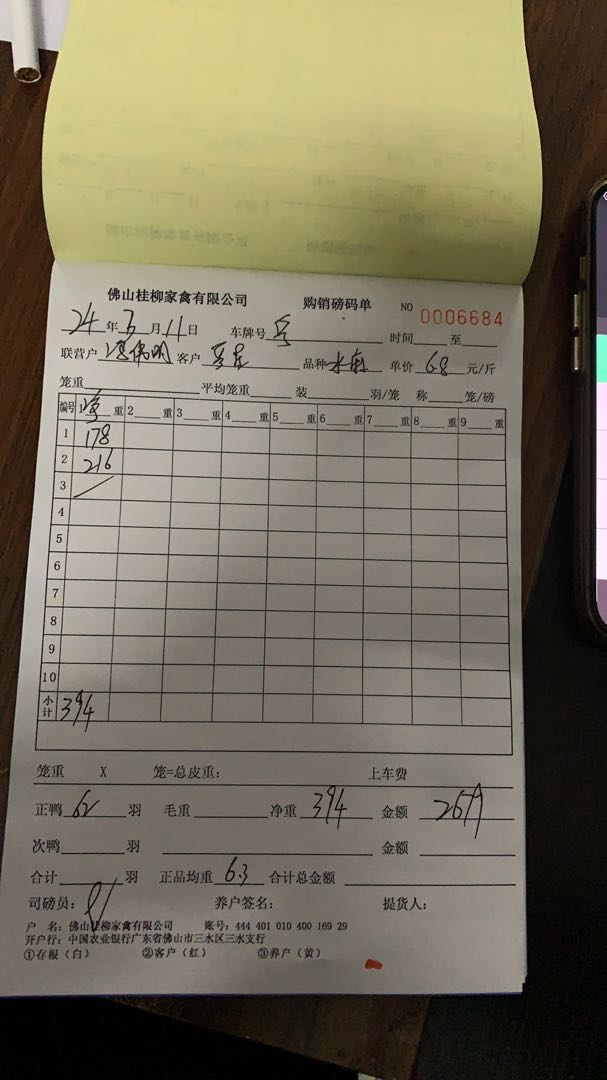 佛山桂柳家禽有限公司 购销磅码单 NO 0006684
24年3月11日 车牌号 时间 至
联营户 客户 品种 水麻 单价 6.8 元/斤
笼重 平均笼重 装 羽/笼 称 笼/磅
编号 1净重 2 重 3 重 4 重 5 重 6 重 7 重 8 重 9 重
1 178
2 216
3
4
5
6
7
8
9
10
小计 394
笼重 X 笼=总皮重: 上车费
正鸭 62 羽 毛重 净重 394 金额 2679
次鸭 羽 金额
合计 羽 正品均重 6.3 合计总金额
司磅员: 养户签名: 提货人:
户 名: 佛山桂柳家禽有限公司 账号: 444 401 010 400 169 29
开户行: 中国农业银行广东省佛山市三水区三水支行
①存根(白) ②客户(红) ③养户(黄)